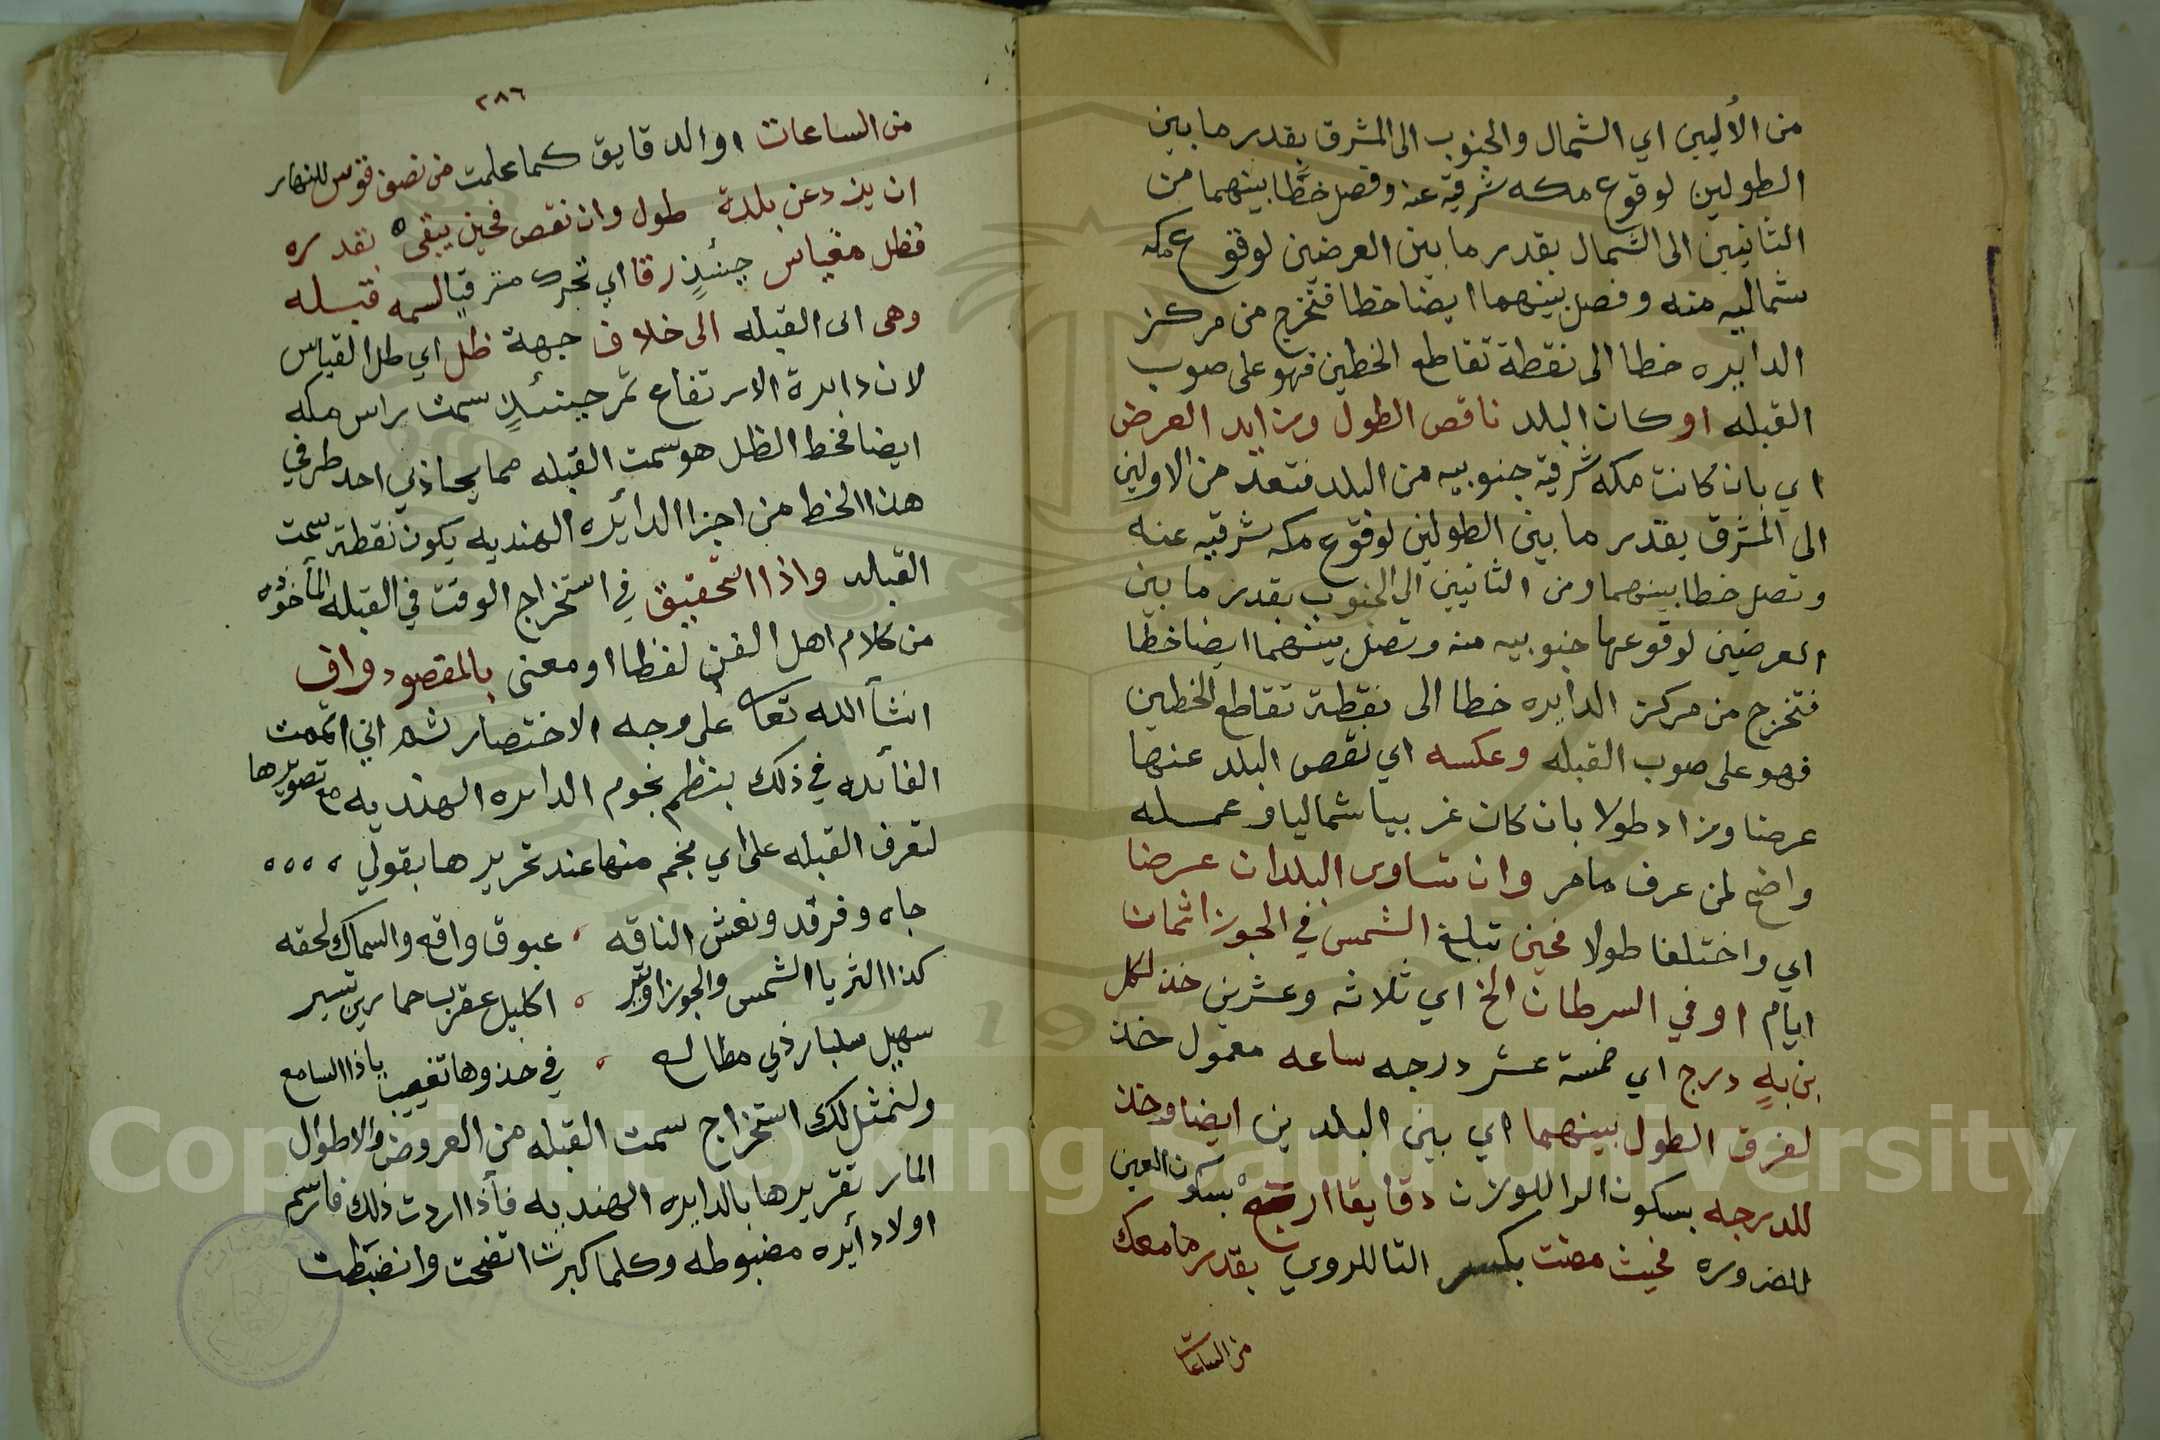 من الأليين اي الشمال والجنوب الى المشرق بقدر ما بين
الطولين لوقوع مكه شرقية عنه وفصل خطًا بينهما من
الثانيين الى الشمال بقدر ما بين العرضين لوقوع مكه
شماليه منه وفصل بينهما ايضا خطا فتخرج من مركز
الدايره خطا الى نقطة تقاطع الخطين فهو على صوب
القبله او كان البلد ناقص الطول وزايد العرض
اي بان كانت مكه شرقية جنوبيه من البلد فتعد من الاولين
الى المشرق بقدر ما بين الطولين لوقوع مكه شرقيه عنه
وتصل خطا بينهما ومن الثانيين الى الجنوب بقدر ما بين
العرضين لوقوعها جنوبيه منه وتصل بينهما ايضا خطا
فتخرج من مركز الدايره خطا الى نقطة تقاطع الخطين
فهو على صوب القبله وعكسه اي نقص البلد عنها
عرضا وزاد طولا بان كان غربيا شماليا وعمله
واضح لمن عرف ما مر وان تساوى البلدان عرضا
اي واختلفا طولا فحين تبلغ الشمس في الجوزا ثمان
ايام او في السرطان الخ اي ثلاثه وعشرين خذ لكل
ين يهٍ درج اي خمسة عشر درجه ساعه معمول خذ
لفرق الطول بينهما اي بين البلدين ايضا وخذ
للدرجه بسكون الرا للوزن دقايقا اربع بسكون العين
للضروره فحيث مضت بكسر التا للروي بقدر ما معك
من الساعات
٢٨٦
من الساعات او الدقايق كما علمت من نصف قوس للنهار
ان يزد عن بلدة طول وان نقص فحين يبقى قدره
فظل مقياس حينئذٍ رقا اي تحرك مترقيا لسمه قبله
وهي اي القبله الى خلاف جهة ظل اي ظل القياس
لان دايرة الارتفاع تمر حينئذٍ سمت راس مكه
ايضا فخط الظل هو سمت القبله مما يحاذي احد طرفي
هذا الخط من اجزا الدائره الهنديه يكون نقطة سمت
القبله واذا التحقيق في استخراج الوقت في القبله المأخوذه
من كلام اهل الفن لفظا او معنى بالمقصود واف
انشآ الله تعا على وجه الاختصار ثم اني اتممت
الفائده في ذلك بنظم نجوم الدايره الهنديه مع تصويرها
لتعرف القبله على اي نجم منها عند تحريرها بقولي
جاه وفرقد ونعش الناقه عيوق واقع والسماك لحقه
كذا الثريا الشمس والجوزا وتير اكليل عقرب حمارين تسير
سهيل سلبار ذي مطالع في حذوها تغيب يا ذا السامع
ولنمثل لك استخراج سمت القبله من العروض والاطوال
المار تقريرها بالدايره الهنديه فأذا اردت ذلك فارسم
اولا دأيره مضبوطه وكلما كبرت اتضحت وانضبطت
Copyright © King Saud University